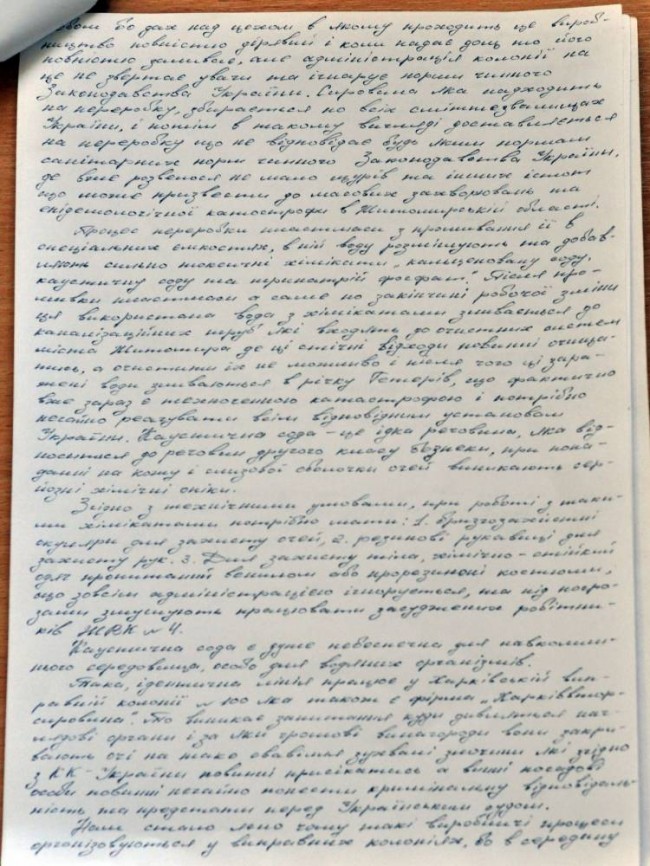 бо дах над цехом в якому проходить це вироб-
ництво повністю дірявий і коли падає дощ то його
повністю заливає, але адміністрація колонії на
це не звертає уваги та ігнорує норми чинного
Законодавства України. Сировина яка надходить
на переробку, збирається по всіх сміттєзвалищах
України, і потім в такому вигляді доставляється
на переробку що не відповідає будь яким нормам
санітарних норм чинного Законодавства України,
де вже розвелося не мало щурів та інших істот
що може призвести до масових захворювань та
епідемологічної катастрофи в Житомирській області.
Процес переробки пластмаси з промивання її в
спеціальних емкостях, в них воду розмішують та добав-
ляють сильно токсичні хімікати „кальценовану соду,
каустичну соду та тринатрій фосфат". Після про-
мивки пластмаси а саме по закінчині робочої зміни
ця використана вода з хімікатами зливається до
каналізаційних труб які входять до очистних систем
міста Житомира де ці стічні відходи повинні очища-
тись, а очистити їх не можливо і після чого ці зара-
жені води зливаються в річку Тетерів, що фактично
вже зараз є техногенною катастрофою і потрібно
негайно реагувати всім відповідним установам
України. Каустична сода - це їдка речовина, яка від-
носиться до речовин другого класу безпеки, при попа-
данні на кожу і слизової оболочки очей виникають сер-
йозні хімічні опіки.
Згідно з технічними умовами, при роботі з таки-
ми хімікатами потрібно мати: 1. Бризгозахистні
окуляри для захисту очей, 2. резинові рукавиці для
захисту рук. 3. Для захисту тіла, хімічно-стійкий
одяг пропитаний або прорезинені костюми,
що зовсім адміністрацією ігнорується, та під погро-
зами змушують працювати засуджених робітни-
ків ЖВК №4.
Каустична сода є дуже небезпечна для навколиш-
нього середовища, особо для водяних організмів.
Така, ідентична лінія працює у Харківській вип-
равній колонії №100 яка також є фірма „Харківвтор-
сировина". То виникає запитання куди дивляться наг-
лядові органи і за які грошові винагороди вони закри-
вають очі на таке свавілля злочини які згідно
з КК - України повинні присікатись а вищі посадові
особи повинні негайно понести кримінальну відповідаль-
ність та предстати перед Українським судом.
Нам стало ясно чому такі виробничі процеси
організовуються у виправних колоніях, бо в середину